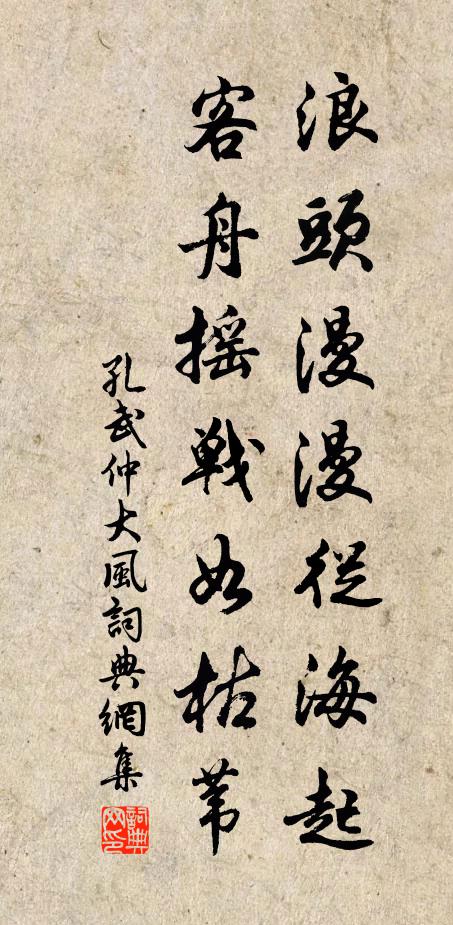 浪頭漫漫從海起
客舟摇戰如枯葦
孔武仲大風詞典網集
詞典网印